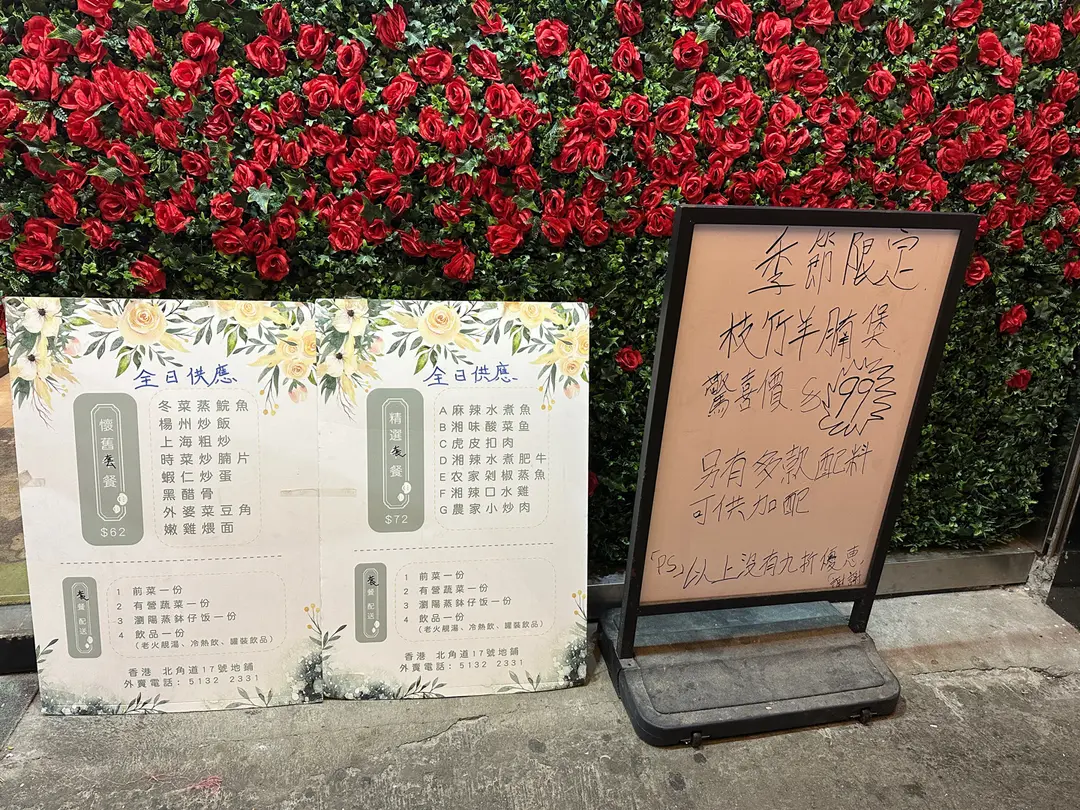 全日供應
懷舊套餐
$62
冬菜蒸鯇魚
楊州炒飯
上海粗炒
時菜炒腩片
蝦仁炒蛋
黑醋骨
外婆菜豆角
嫩雞煨面
套餐配送
1 前菜一份
2 有營蔬菜一份
3 瀏陽蒸鉢仔飯一份
4 飲品一份
(老火靚湯、冷熱飲、罐裝飲品)
香港 北角道17號地鋪
外賣電話: 5132 2331
全日供應
精選套餐
$72
A麻辣水煮魚
B湘味酸菜鱼
C虎皮扣肉
D湘辣水煮肥牛
E农家剁椒蒸魚
F湘辣口水雞
G農家小炒肉
套餐配送
1 前菜一份
2 有營蔬菜一份
3 瀏陽蒸鉢仔饭一份
4 飲品一份
(老火靚湯、冷熱飲、罐裝飲品)
香港 北角道17號地鋪
外賣電話: 5132 2331
季節限定
枝竹羊腩煲
驚喜價 $199
另有多款配料
可供加配
「PS」以上没有九折優惠